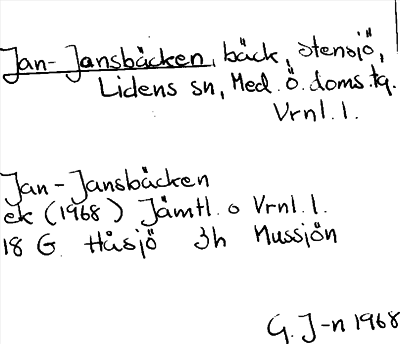 Jan-Jansbäcken, bäck, Stensjö,
Lidens sn, Med. ö. doms. tg.
Vrnl. l.
Jan-Jansbäcken
ek (1968) Jämtl. o Vrnl. l.
18 G Håsjö 3h Mussjön
G. J-n 1968